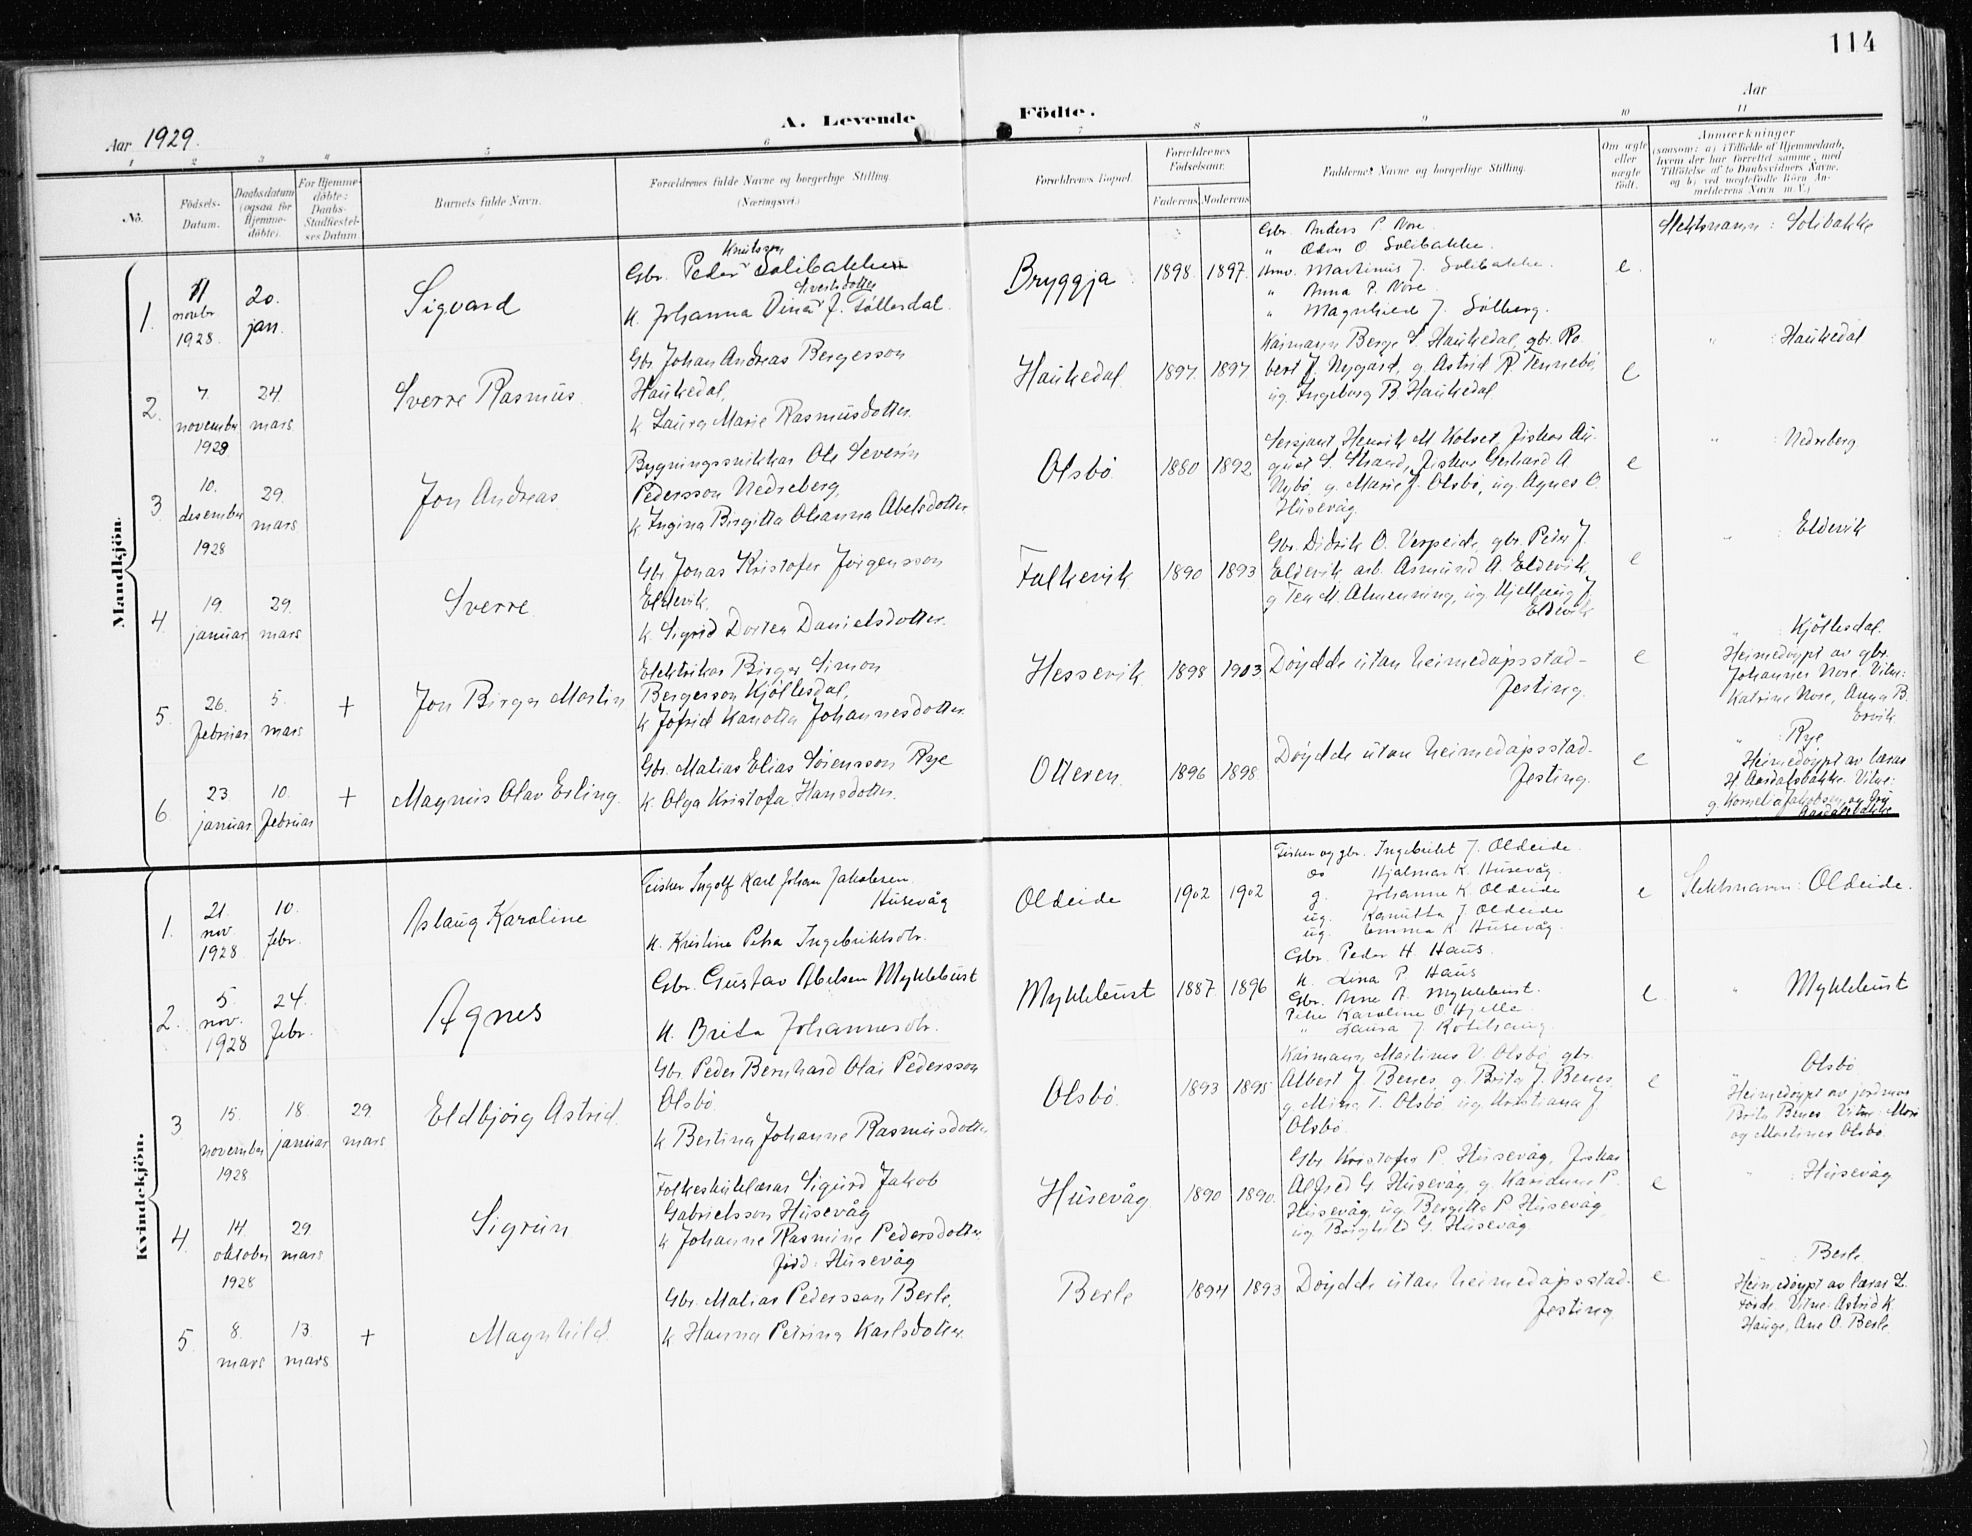 114
Aar 1929.
A. Levende Födte.
Aar
1 2 3 4 5 6 7 8 9 10 11
No.
Födsels-
Datum.
Daabsdatum
(ogsaa for
Hjemme-
döbte).
For Hjemme-
döbte:
Daabs-
Stadfæstel-
ses Datum
Barnets fulde Navn.
Forældrenes fulde Navne og borgerlige Stilling.
(Næringsvei.)
Forældrenes Bopæl.
Forældrenes
Födselsaar.
Faderens Moderens
Faddernes Navne og borgerlige Stilling.
Om ægte
eller
uægte
födt.
Anmærkninger
(saasom: a) i Tilfælde af Hjemmedaab,
hvem der har forrettet samme, med
Tilföielse af to Daabsvidners Navne,
og b) ved uægtefödte Börn An-
melderens Navn m. V.)
Mandkjön.
1.
11
novbr
1928.
20.
jan.
Sigvard
Knutsson
Gbr. Peder Solibakken
Sivertsdotter
K. Johanna Dina J. Föllesdal.
Bryggja
1898. 1897.
Gbr. Anders P. Nore.
" Oden O Solibakke.
Kmv. Martinus J. Solibakke.
" Anna P. Nore.
" Magnhild J. Sölberg.
e.
Slektsnamn: Solibakke
2.
7.
november
1929
24.
mars
Sverre Rasmus
Gbr. Johan Andreas Bergesson
Haukedal,
k Laura Marie Rasmusdotter
Haukedal.
1897. 1897.
Kaimann Berge S. Haukedal, gbr. Ro-
bert J. Nygård, g. Astrid R Tennebö,
ug. Ingeborg B Haukedal
e
" : Haukedal
3.
10.
desember
1928
29.
mars
Jon Andreas.
Bygningssnikkar Ole Severin
Pedersson Nedreberg,
k Ingina Birgitta Oleanna Abelsdotter
Olsbö.
1880 1892
Sersjant Henrik M Kolset, fiskar Au-
gust S. Strand, fiskar Gerhard A
Nybö, g. Marie J. Olsbö, ug. Agnes O.
Husevåg.
e
" : Nedreberg
4.
19.
januar
29.
mars
Sverre.
Gbr Jonas Kristofer Jörgensson
Eldevik,
k Sigrid Dortea Danielsdotter.
Falkevik
1890 1893
Gbr. Didrik O. Verpeide, gbr. Peder J.
Eldevik arb. Asmund A. Eldevik,
g Tea M. Almenning, ug. Kjellaug J.
Eldevik
e
" : Eldevik
5.
26.
februar
5.
mars
+
Jon Birger Martin
Elektrikar Birger Simon
Bergesson Kjöllesdal,
k Jofrid Kanotta Johannesdotter.
Hessevik
1898 1903
Döydde utan heimedåpsstad-
festing.
e
" : Kjöllesdal.
Heimedöypt av gbr.
Johannes Nore. Vitne:
Katrine Nore, Anna B.
Ervik.
6.
23.
januar
10.
februar
+
Magnus Olav Erling.
Gbr. Matias Elias Sörensson Rye
k Olga Kristofa Hansdotter.
Otteren.
1896 1898.
Döydde utan heimedåpsstad-
festing.
e
" : Rye
Heimedöypt av lærar
H. Aardalsbakke. Vitne:
g. Kornelia Jakobsen, og
Aardalsbakke
Kvindekjön.
1.
21.
nov.
1928.
10.
febr.
Aslaug Karoline
Fisker Ingolf Karl Johan Jakobsen
Husevåg
K. Kristine Petra Ingebriktsdtr.
Oldeide
1902 1902
Fisker og gbr. Ingebrikt J. Oldeide.
do Hjalmar K. Husevåg.
g. Johanne K. Oldeide
ug. Kanutta J Oldeide
ug. Emma K. Husevåg.
e
Slektsnavn: Oldeide.
2.
5.
nov.
1928
24.
febr.
Agnes
Gbr. Gustav Abelsen Myklebust
K. Brita Johannesdtr.
Myklebust
1887. 1896
Gbr. Peder H. Haus.
K. Lina P. Haus
Gbr. Arne A. Myklebust.
Pike Karoline O. Hjelle.
" Laura J Rotihaug.
e.
" Myklebust
3
15.
november
1928
18.
januar
29.
mars
Eldbjörg Astrid.
Gbr Peder Bernhard Olai Pedersson
Olsbö.
k Bertina Johanne Rasmusdotter
Olsbö.
1893 1895
Kaimann Martines V. Olsbö, gbr.
Albert J. Benes, g. Brita J. Benes,
g. Mina T. Olsbö ug. Kristiana J
Olsbö.
e
" Olsbö.
Heimedöypt av jordmor
Brita Benes. Vitne: Mari
og Martines Olsbö.
4.
14.
oktober
1928
29.
mars
Sigrun
Folkeskulelærar Sigurd Jakob
Gabrielsson Husevåg
k Johanne Rasmine Pedersdotter
född: Husevåg
Husevåg.
1890 1890.
Gbr Kristofer P. Husevåg, fiskar
Alfred G. Husevåg, g. Karoline P.
Husevåg, ug. Bergitte P Husevåg,
ug Borghild G. Husevåg
e
" : Husevåg
5.
8.
mars
13.
mars
+
Magnhild
Gbr. Matias Pedersson Berle,
k Hanna Petrina Karlsdotter.
Berle
1894 1893
Döydde utan heimedåpsstad-
festing.
e
" : Berle
Heimedöypt av lærar L.
Förde. Vitne: Astrid K.
Hauge, Ane O. Berle.